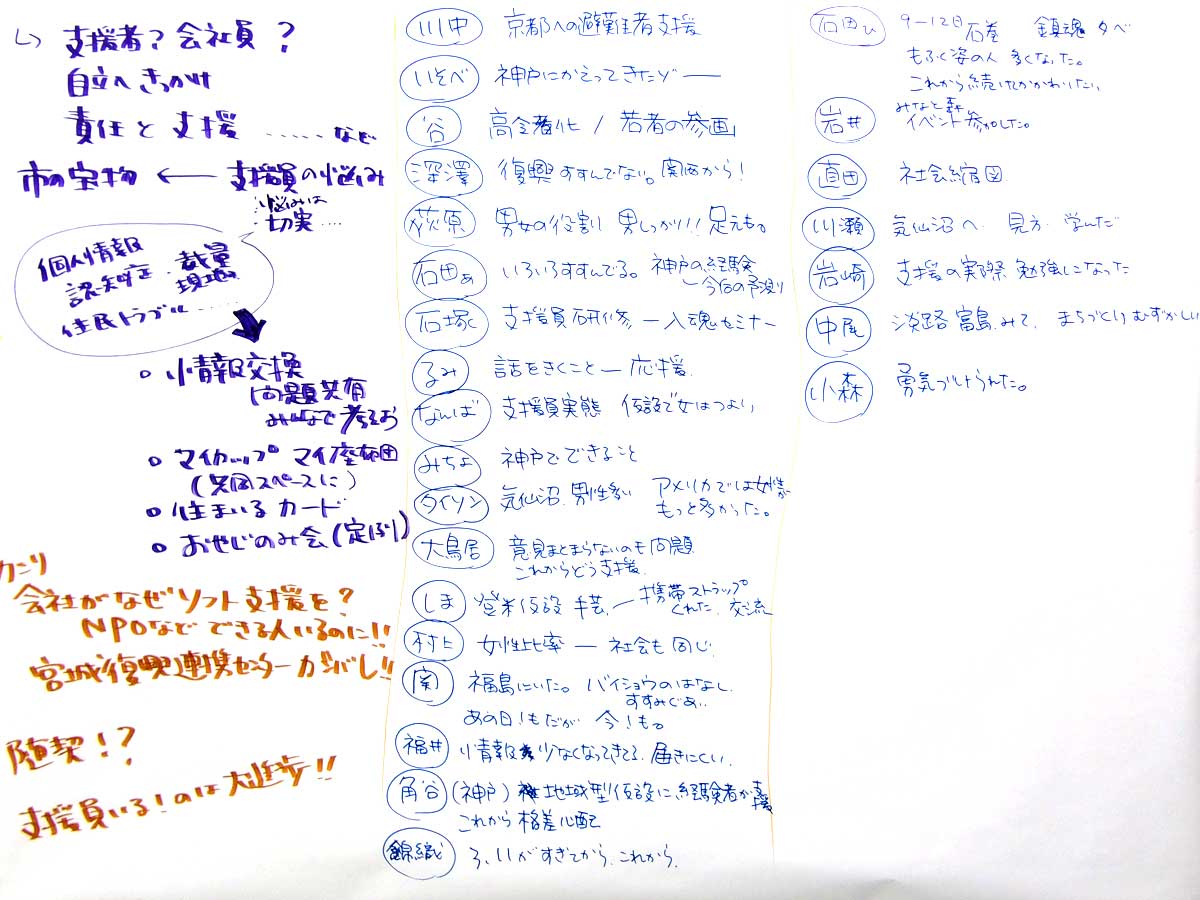 ↳ 支援者?会社員?
自立へきっかけ
責任と支援 ……など
市の宝物 ← 支援員の悩み
悩みは
切実…
個人情報
認知症・裁量
現地
住民トラブル……
○ 情報交換
問題共有
みんなで考えよう
○ マイカップ マイ座布団
(共同スペースに)
○ 住まいるカード
○ おやじのみ会(定例)
会社がなぜソフト支援を?
NPOなどできる人いるのに!!
宮城復興連携センターガンバレ!!
随契!?
支援員いる!のは大進歩!!
川中 京都への避難者支援
いそべ 神戸にかえってきたゾ―
谷 高令者化/若者の参画
深澤 復興すすんでない。関西から!
荻原 男女の役割 男しっかり!!足元も。
石田あ いろいろすすんでる。神戸の経験
今後の予測
石塚 支援員研修―入魂セミナー
るみ 話をきくこと―応援。
なんば 支援員実態 仮設で女はつよい
みちよ 神戸でできること
タイソン 気仙沼、男性多い アメリカでは女性が
もっと多かった。
大鳥居 意見まとまらないのも問題
これからどう支援。
しま 登米仮設 手芸、― 携帯ストラップ
くれた、交流
村上 女性比率 ― 社会も同じ。
関 福島にいた。バイショウのはなし。
すすみぐあい
あの日!もだが 今!も。
福井 情報少なくなってきてる、届きにくい。
角谷 (神戸) 地域型仮設に経験者が支援
これから格差心配
錦織 3、11がすぎてから、これから。
石田ひ 9–12日 石巻 鎮魂 夕べ
もふく姿の人 多くなった。
これから続けてかかわりたい
岩井 みなと森
イベント参加した。
直田 社会縮図
川瀬 気仙沼へ 見方 学んだ
岩崎 支援の実際 勉強になった
中尾 淡路 富島みて、まちづくりむずかしい
小森 勇気づけられた。